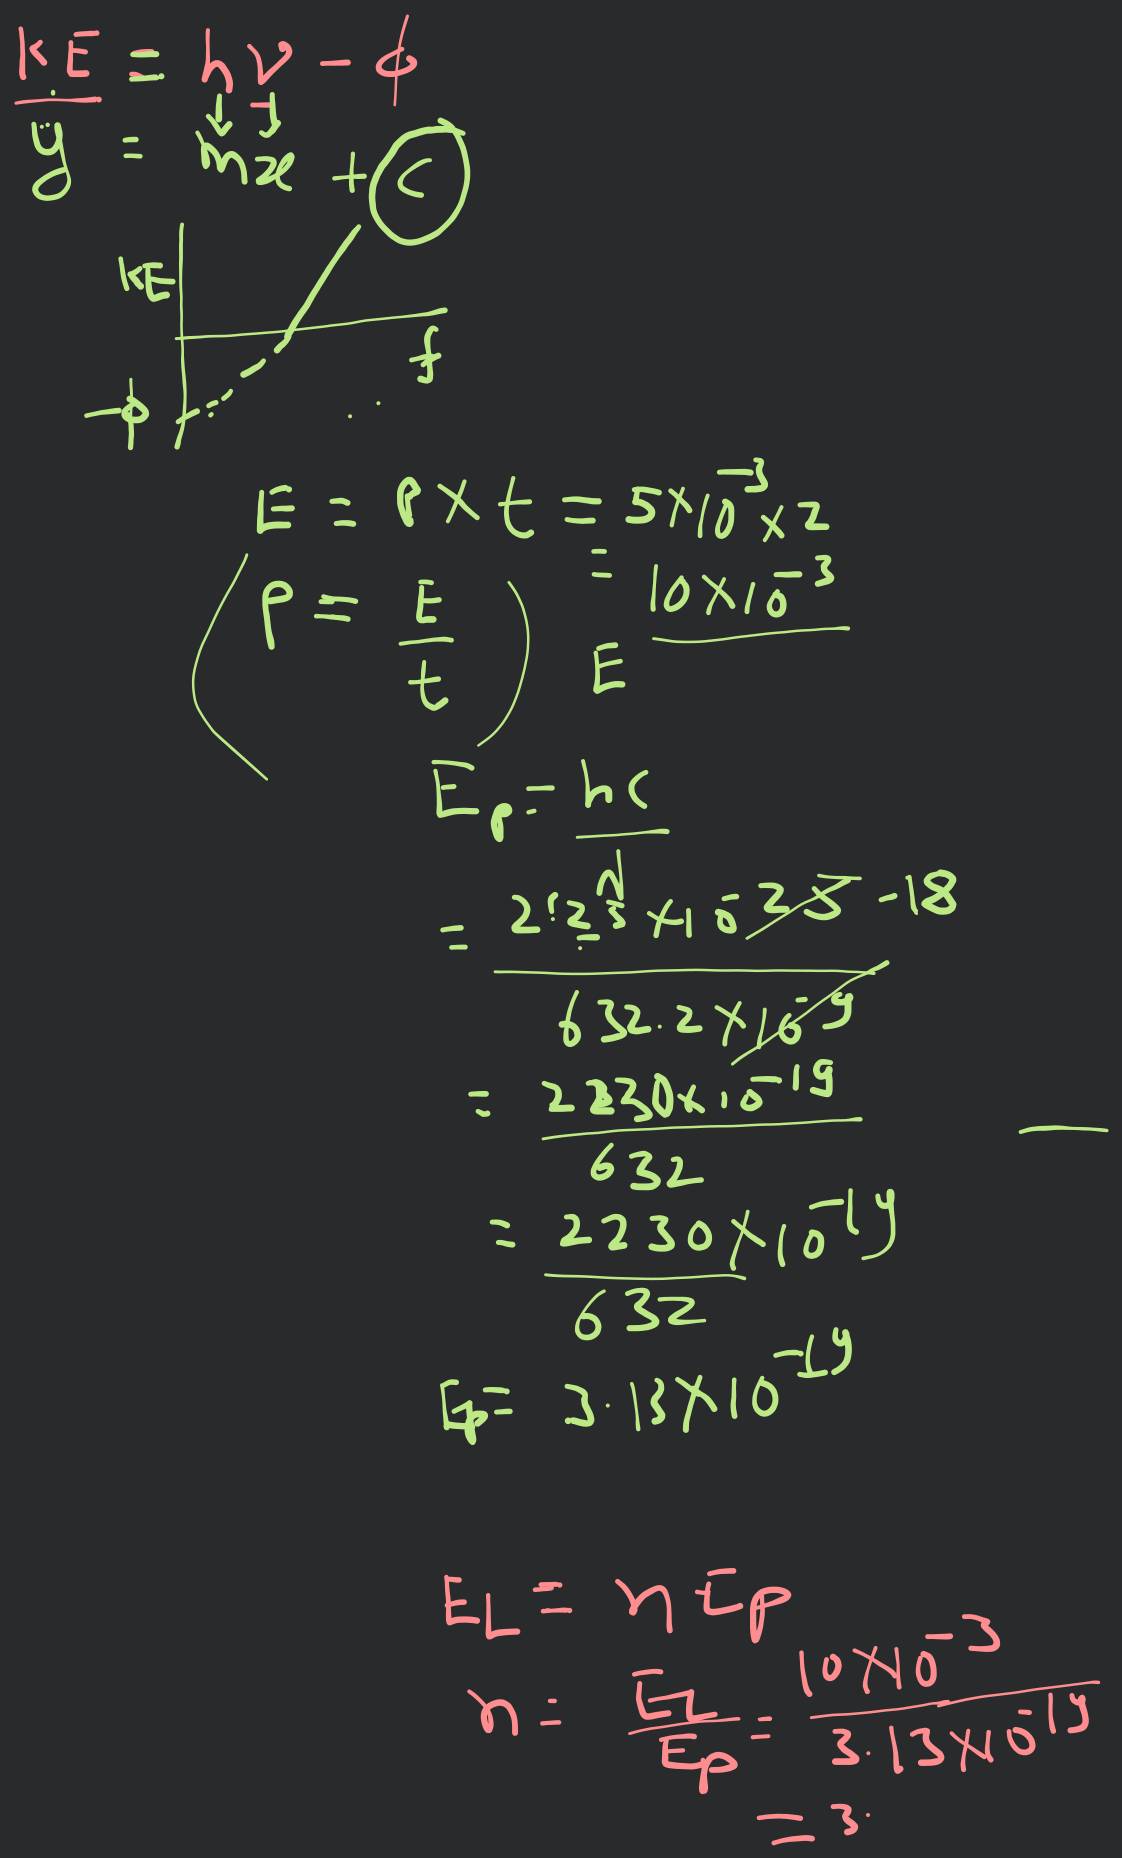 KE = hν - ϕ
y = mx + C
KE
f
-ϕ
E = P × t = 5×10⁻³ × 2
= 10×10⁻³
P = E/t
E
Ep = hc/λ
= 10⁻²⁵ -18
632.2×10⁻⁹
= 2230×10⁻¹⁹
632
= 2230×10⁻¹⁹
632
Ep = 3.13×10⁻¹⁹
EL = nEp
n = EL/Ep = 10×10⁻³/3.13×10⁻¹⁹
= 3.